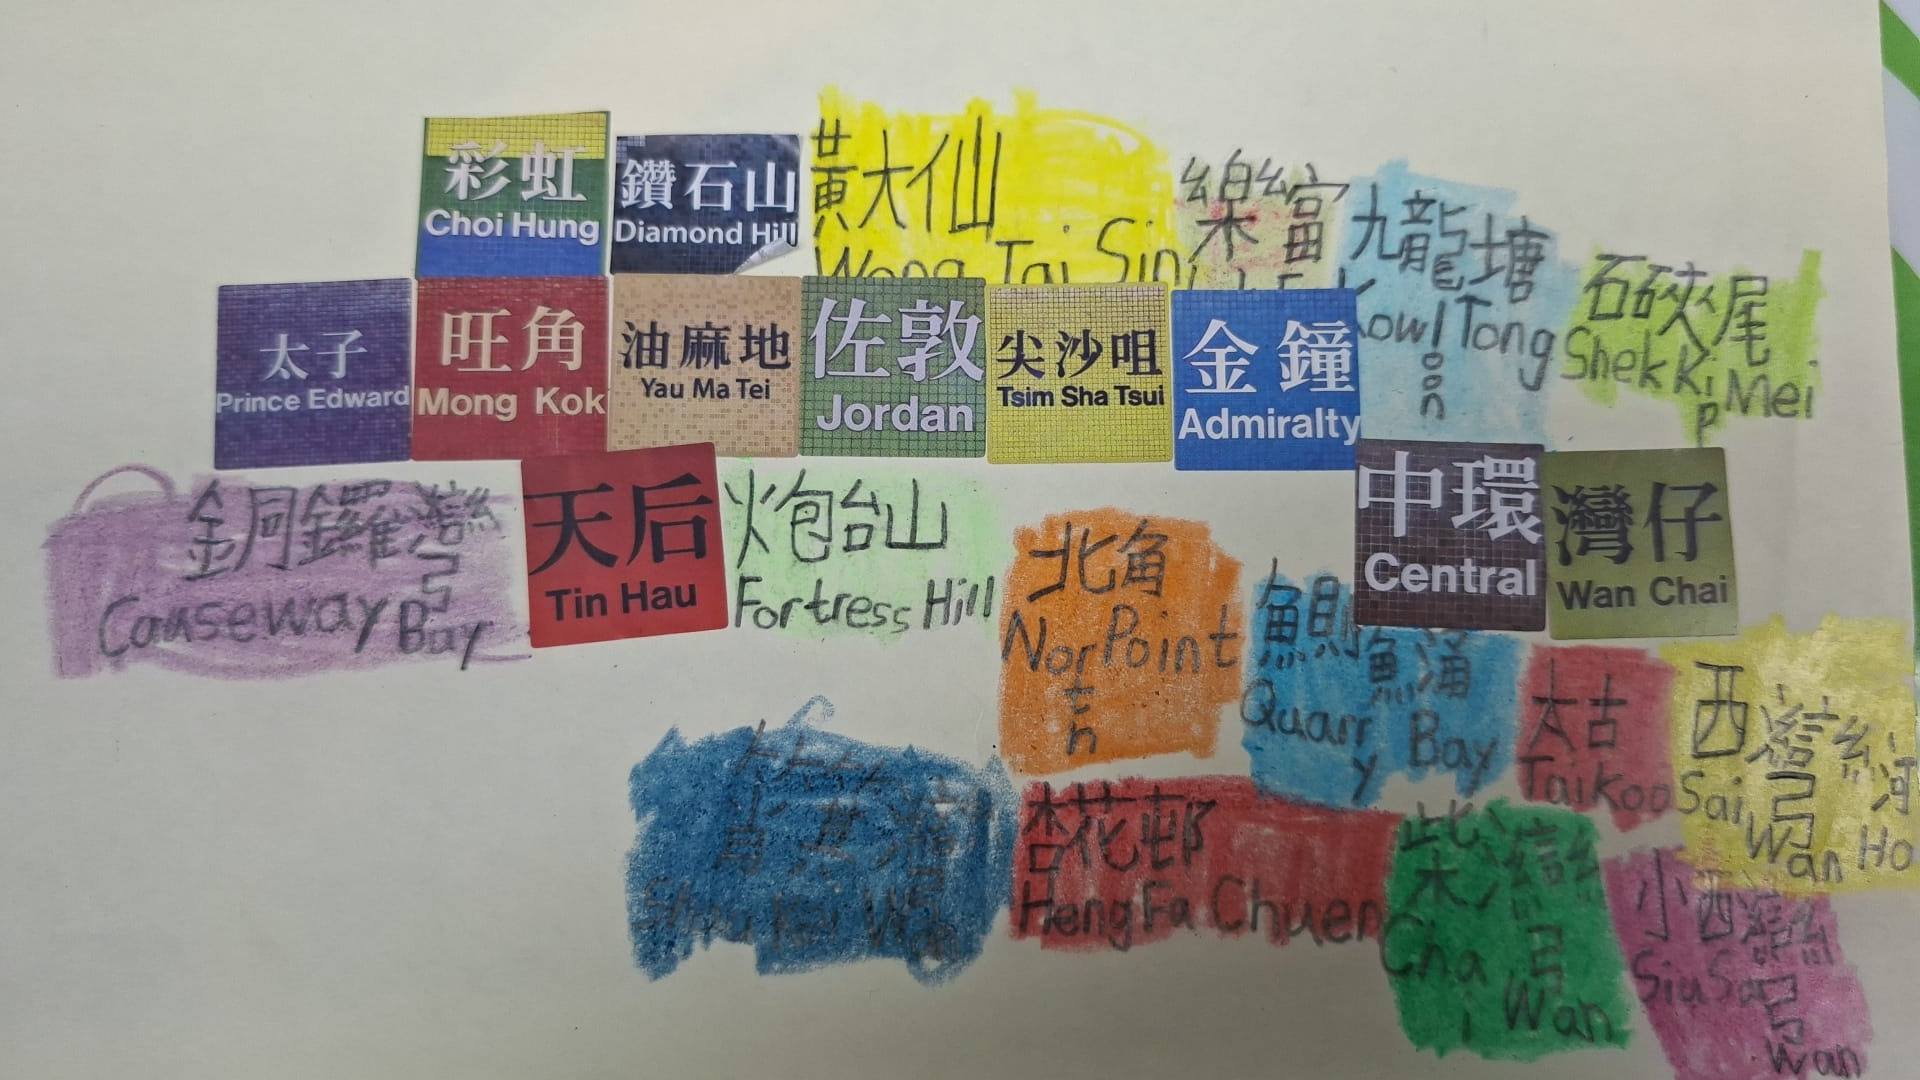 彩虹
Choi Hung
鑽石山
Diamond Hill
黃大仙
Wong Tai Sin
樂富
九龍塘
Kowloon Tong
石硤尾
Shek Kip Mei
太子
Prince Edward
旺角
Mong Kok
油麻地
Yau Ma Tei
佐敦
Jordan
尖沙咀
Tsim Sha Tsui
金鐘
Admiralty
中環
Central
灣仔
Wan Chai
銅鑼灣
Causeway Bay
天后
Tin Hau
炮台山
Fortress Hill
北角
North Point
鰂魚涌
Quarry Bay
太古
Taikoo
西灣河
Sai Wan Ho
筲箕灣
Shau Kei Wan
杏花邨
Heng Fa Chuen
柴灣
Chai Wan
小西灣
Siu Sai Wan